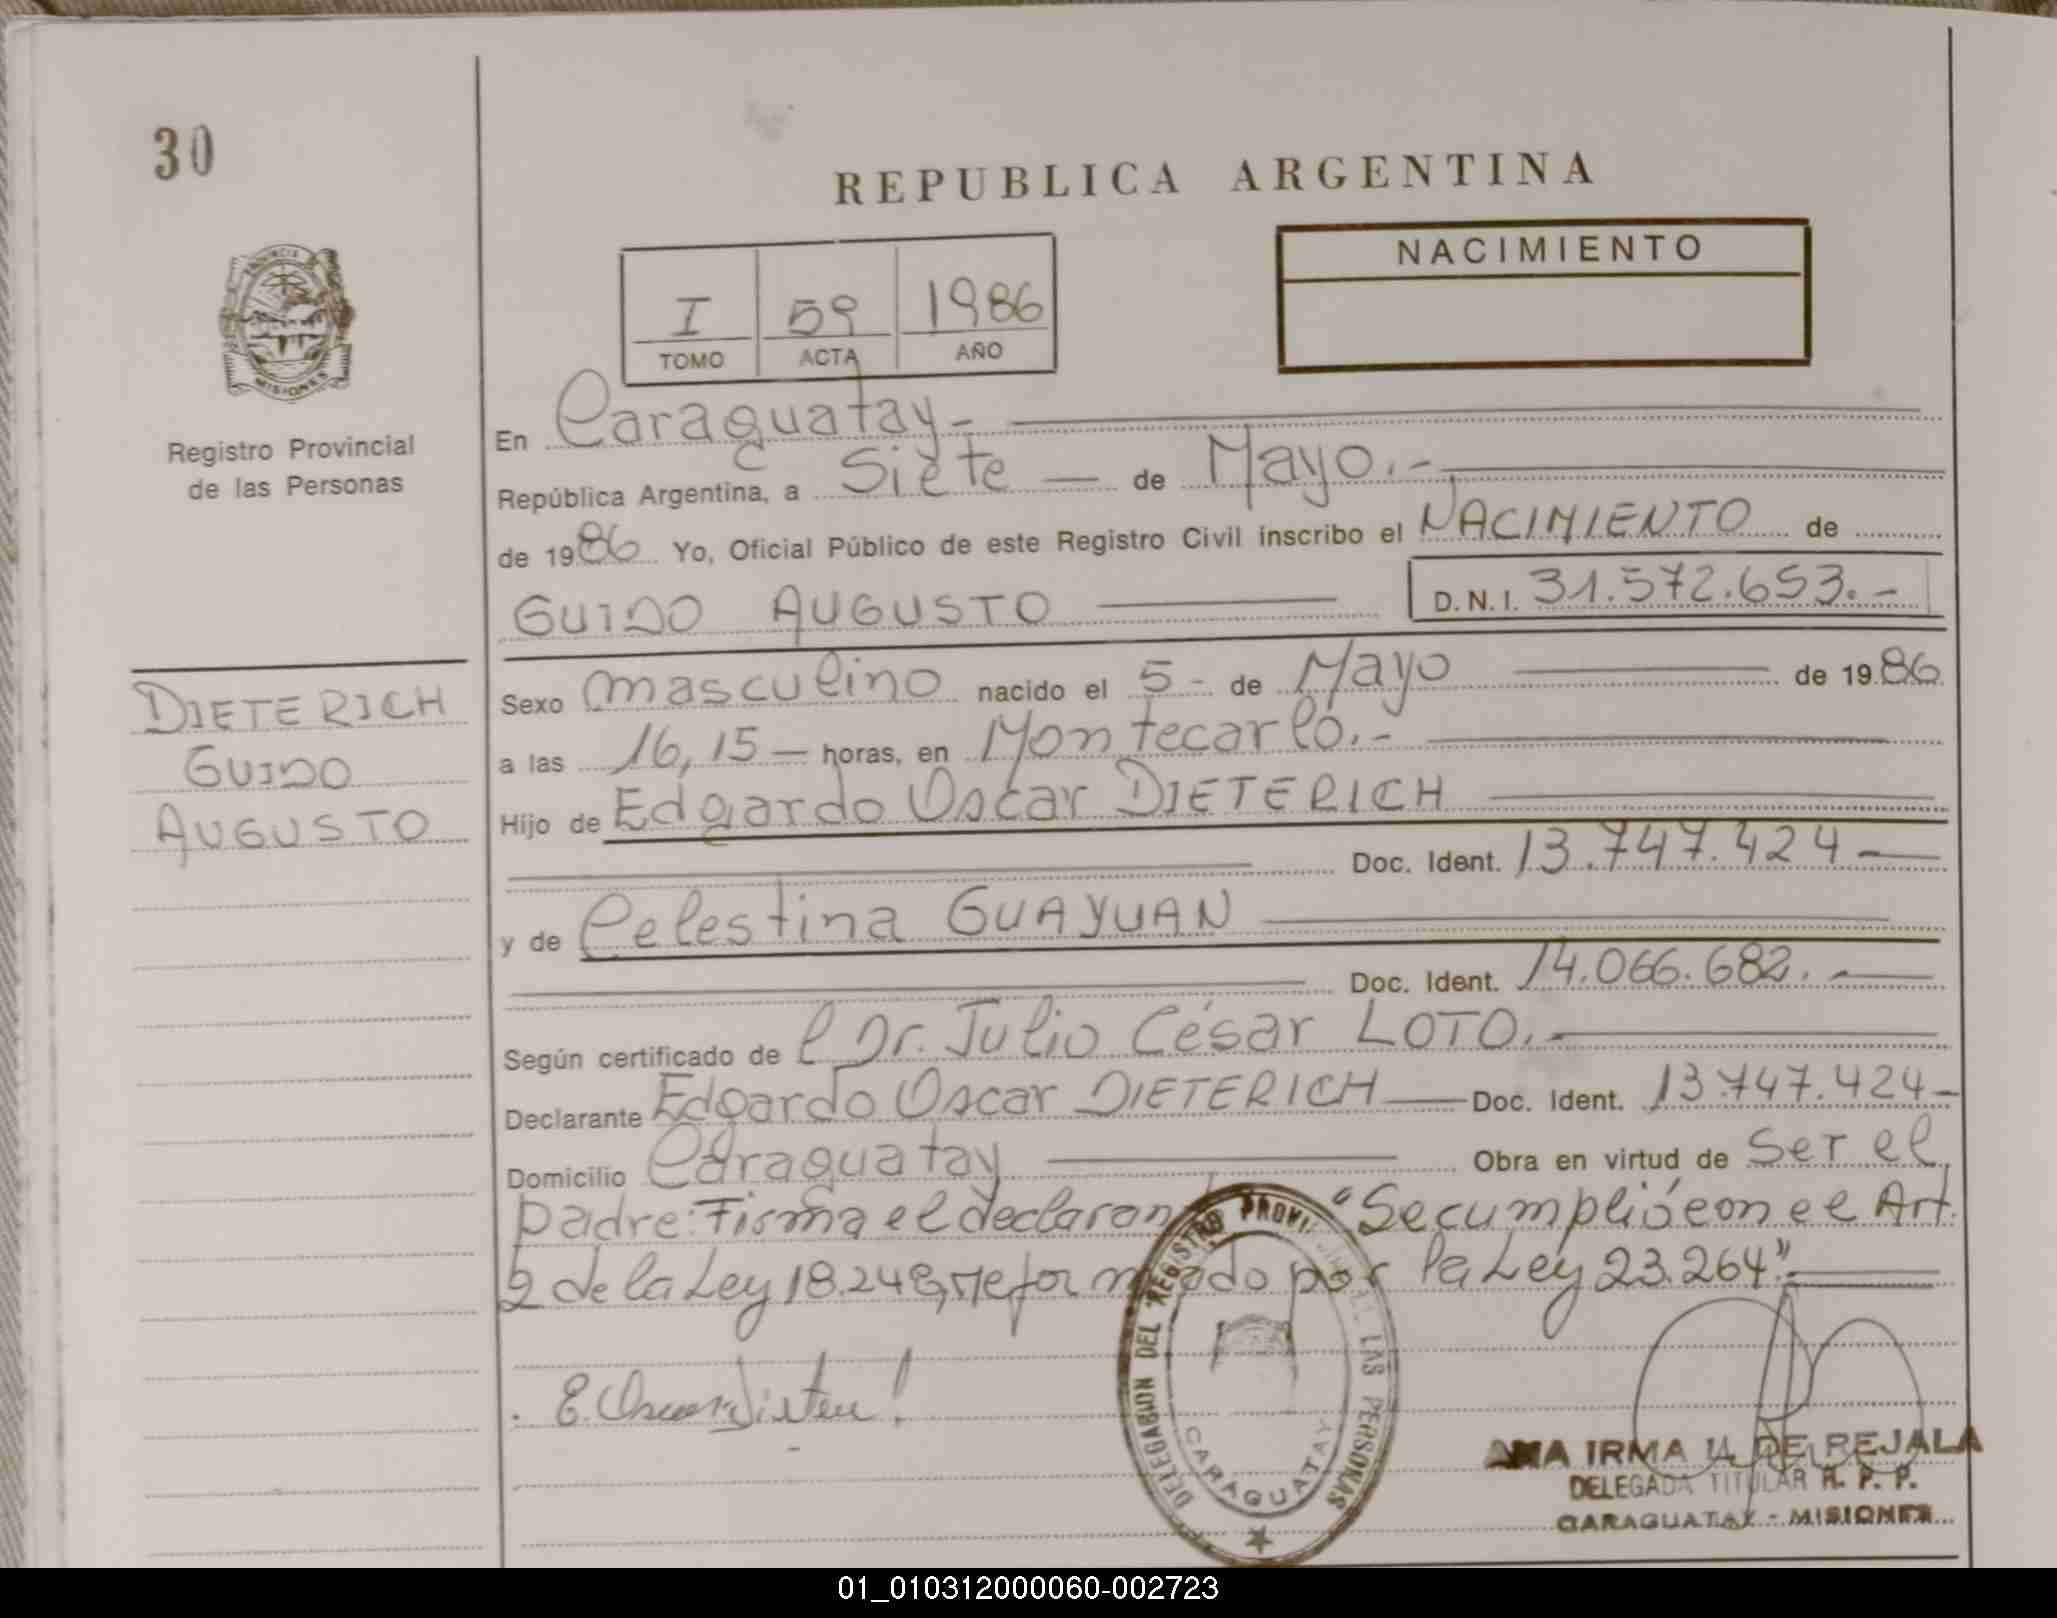 30
REPUBLICA ARGENTINA
NACIMIENTO
I 59 1986
TOMO ACTA AÑO
PROVINCIA DE
MISIONES
Registro Provincial
de las Personas
En Caraguatay-
República Argentina, a Siete — de Mayo.-
de 1986 Yo, Oficial Público de este Registro Civil inscribo el NACIMIENTO de
GUIDO AUGUSTO D.N.I. 31.572.653.-
DIETERICH
GUIDO
AUGUSTO
Sexo masculino nacido el 5- de Mayo de 1986
a las 16,15 — horas, en Montecarlo.-
Hijo de Edgardo Oscar DIETERICH
Doc. Ident. 13.747.424 —
y de Celestina GUAYUAN
Doc. Ident. 14.066.682.-
Según certificado de l Dr. Julio César LOTO.-
Declarante Edgardo Oscar DIETERICH — Doc. Ident. 13.747.424-
Domicilio Caraguatay Obra en virtud de ser el
padre: Firma el declaran "Se cumplió con el Art.
2 de la Ley 18.248, reformado por la Ley 23.264".-
DELEGACION DEL REGISTRO PROVINCIAL LAS PERSONAS
CARAGUATAY
ANA IRMA DE REJALA
DELEGADA TITULAR R. P. P.
CARAGUATAY - MISIONES
01_010312000060-002723